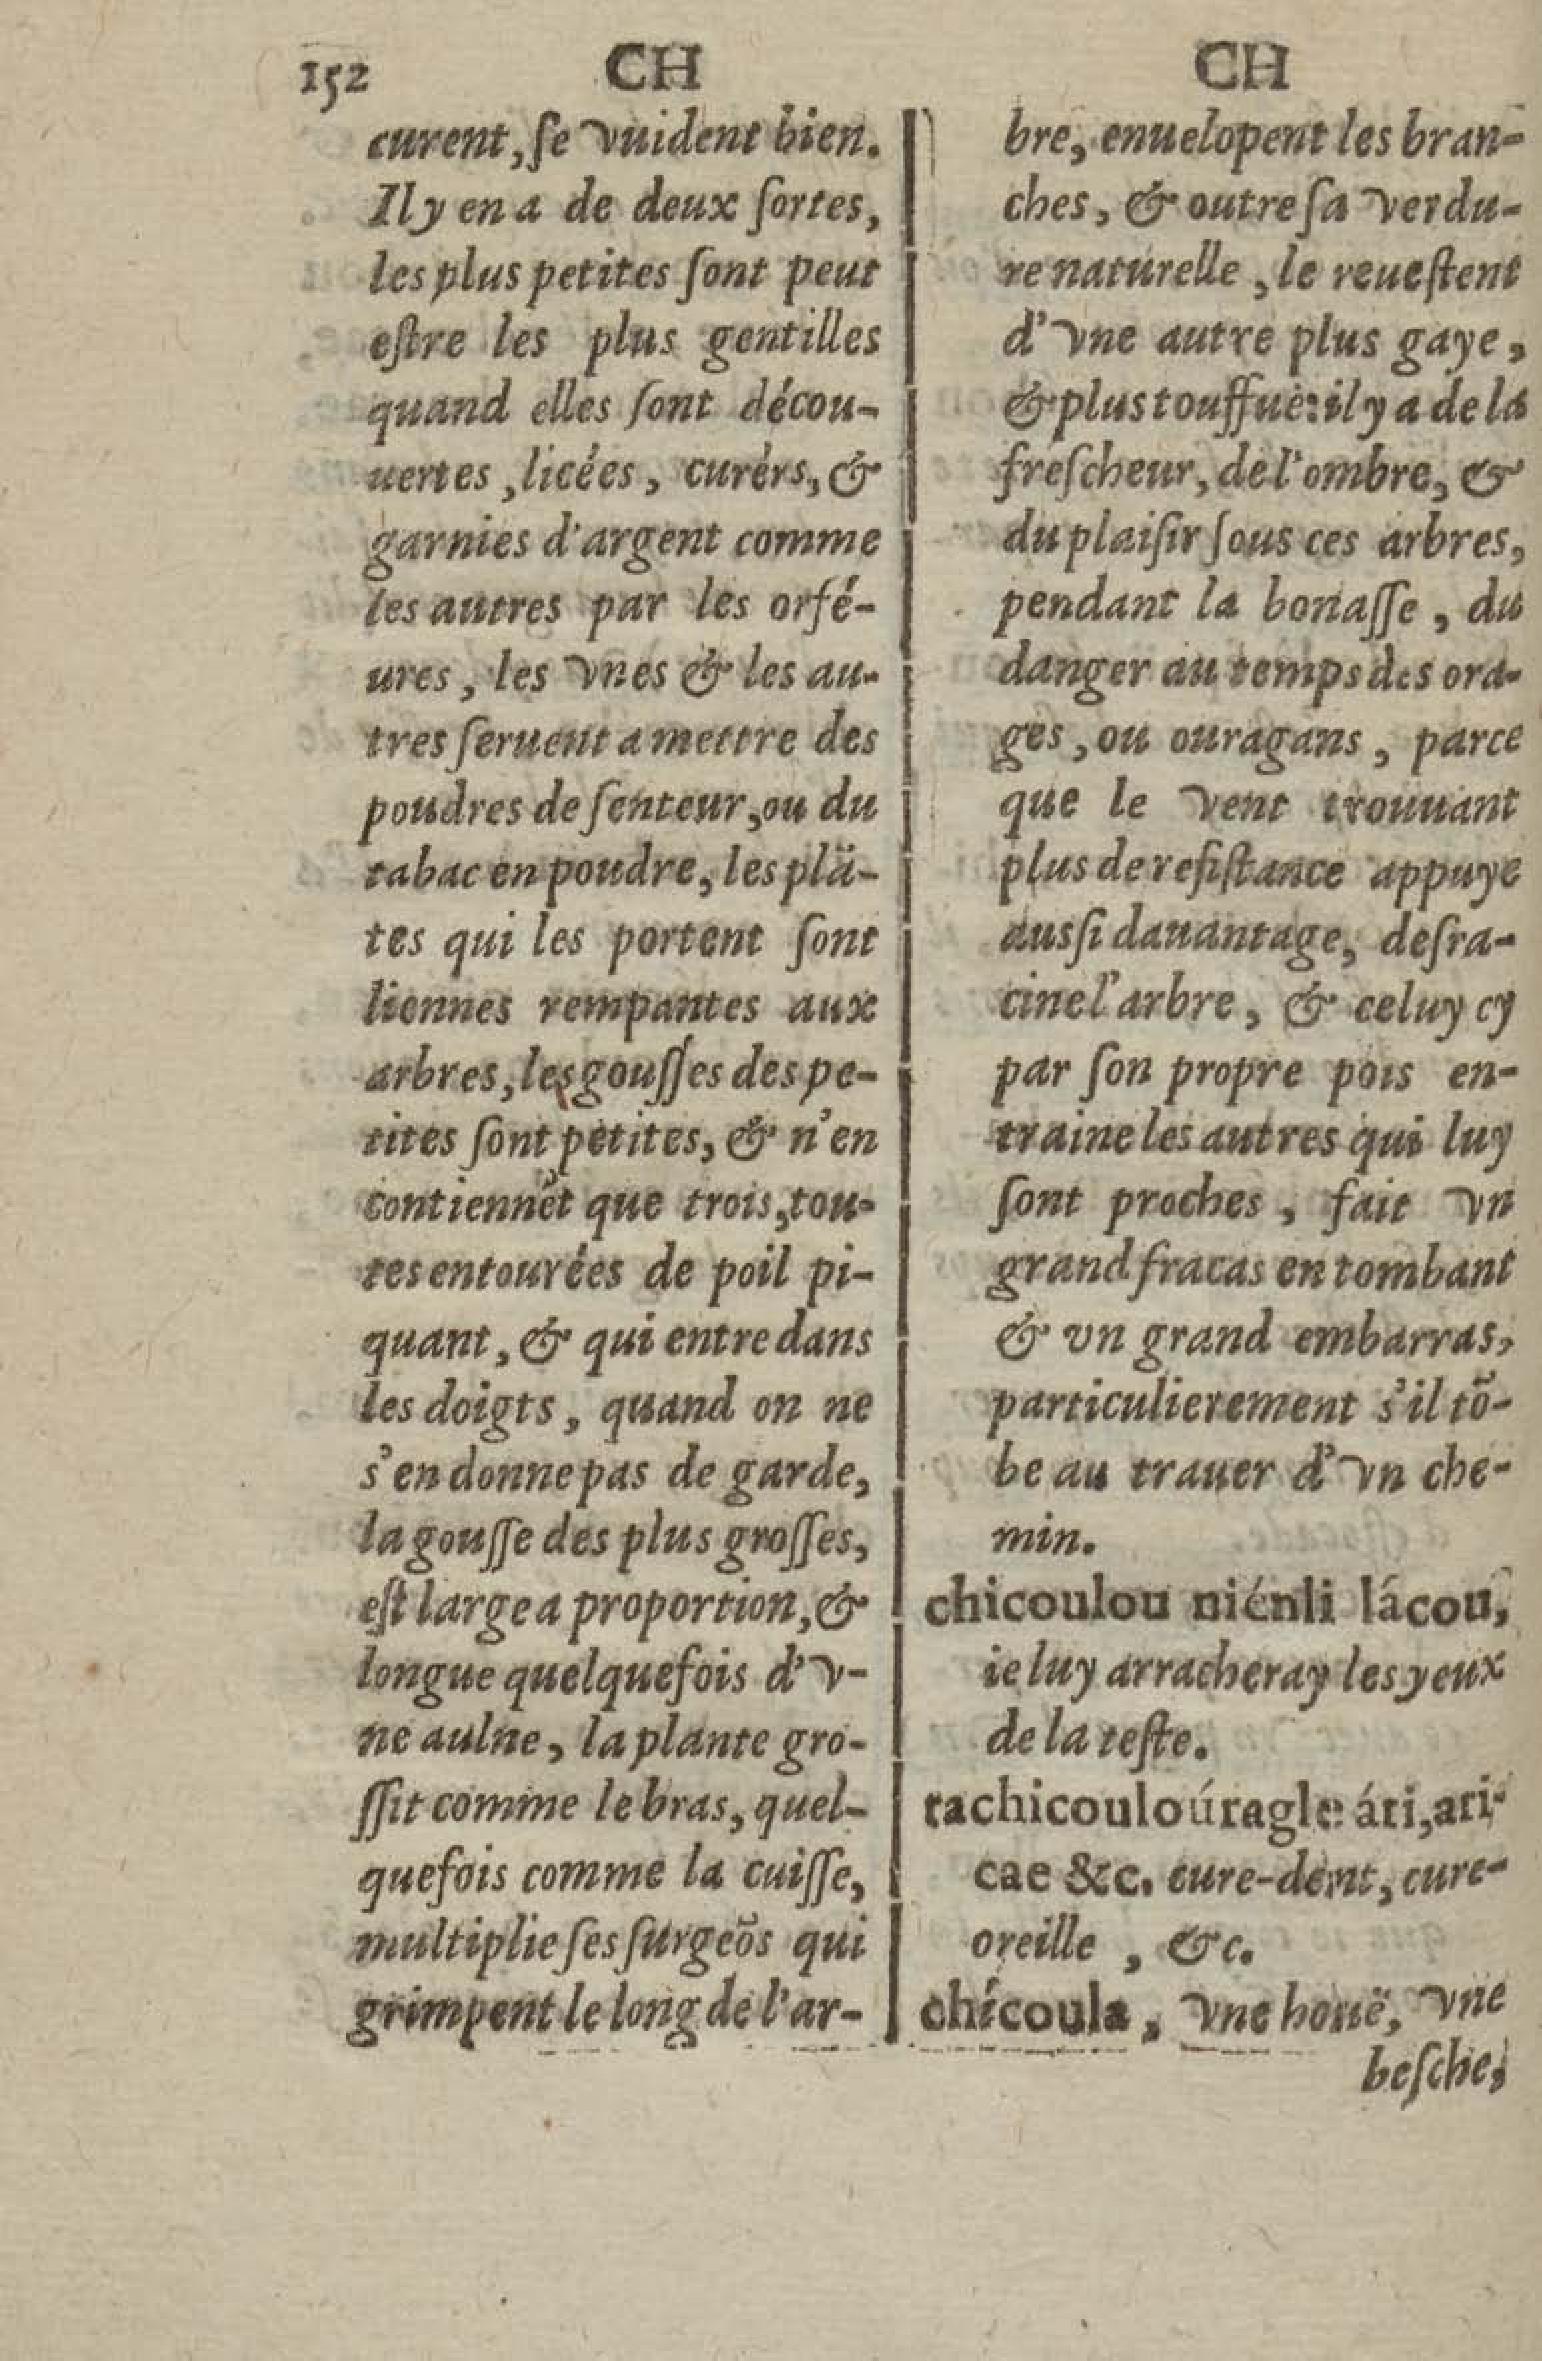 152 CH CH
curent, ſe vuident bien.
Il y en a de deux ſortes,
les plus petites ſont peut
eſtre les plus gentilles
quand elles ſont décou-
uertes, licées, curérs, &
garnies d'argent comme
les autres par les orfé-
ures, les vnes & les au-
tres ſeruent a mettre des
poudres de ſenteur, ou du
tabac en poudre, les plã-
tes qui les portent ſont
liennes rempantes aux
arbres, les gouſſes des pe-
tites ſont petites, & n'en
contiennẽt que trois, tou-
tes entourées de poil pi-
quant, & qui entre dans
les doigts, quand on ne
s'en donne pas de garde,
la gouſſe des plus groſſes,
eſt large a proportion, &
longue quelquefois d'v-
ne aulne, la plante gro-
ſſit comme le bras, quel-
quefois comme la cuiſſe,
multiplie ſes ſurgeõs qui
grimpent le long de l'ar-
bre, enuelopent les bran-
ches, & outre ſa verdu-
re naturelle, le reueſtent
d'vne autre plus gaye,
& plus touffuë: il y a de la
freſcheur, de l'ombre, &
du plaiſir ſous ces arbres,
pendant la bonaſſe, du
danger au temps des ora-
ges, ou ouragans, parce
que le vent trouuant
plus de reſiſtance appuye
ausſi dauantage, deſra-
cine l'arbre, & celuy cy
par ſon propre pois en-
traine les autres qui luy
ſont proches, fait vn
grand fracas en tombant
& vn grand embarras,
particulierement s'il tõ-
be au trauer d'vn che-
min.
chicoulou niénli lácou,
ie luy arracheray les yeux
de la teſte.
tachicoulouragle áti, ati-
cae &c. cure-dent, cure-
oreille, &c.
chícoula, vne houë, vne
beſche,